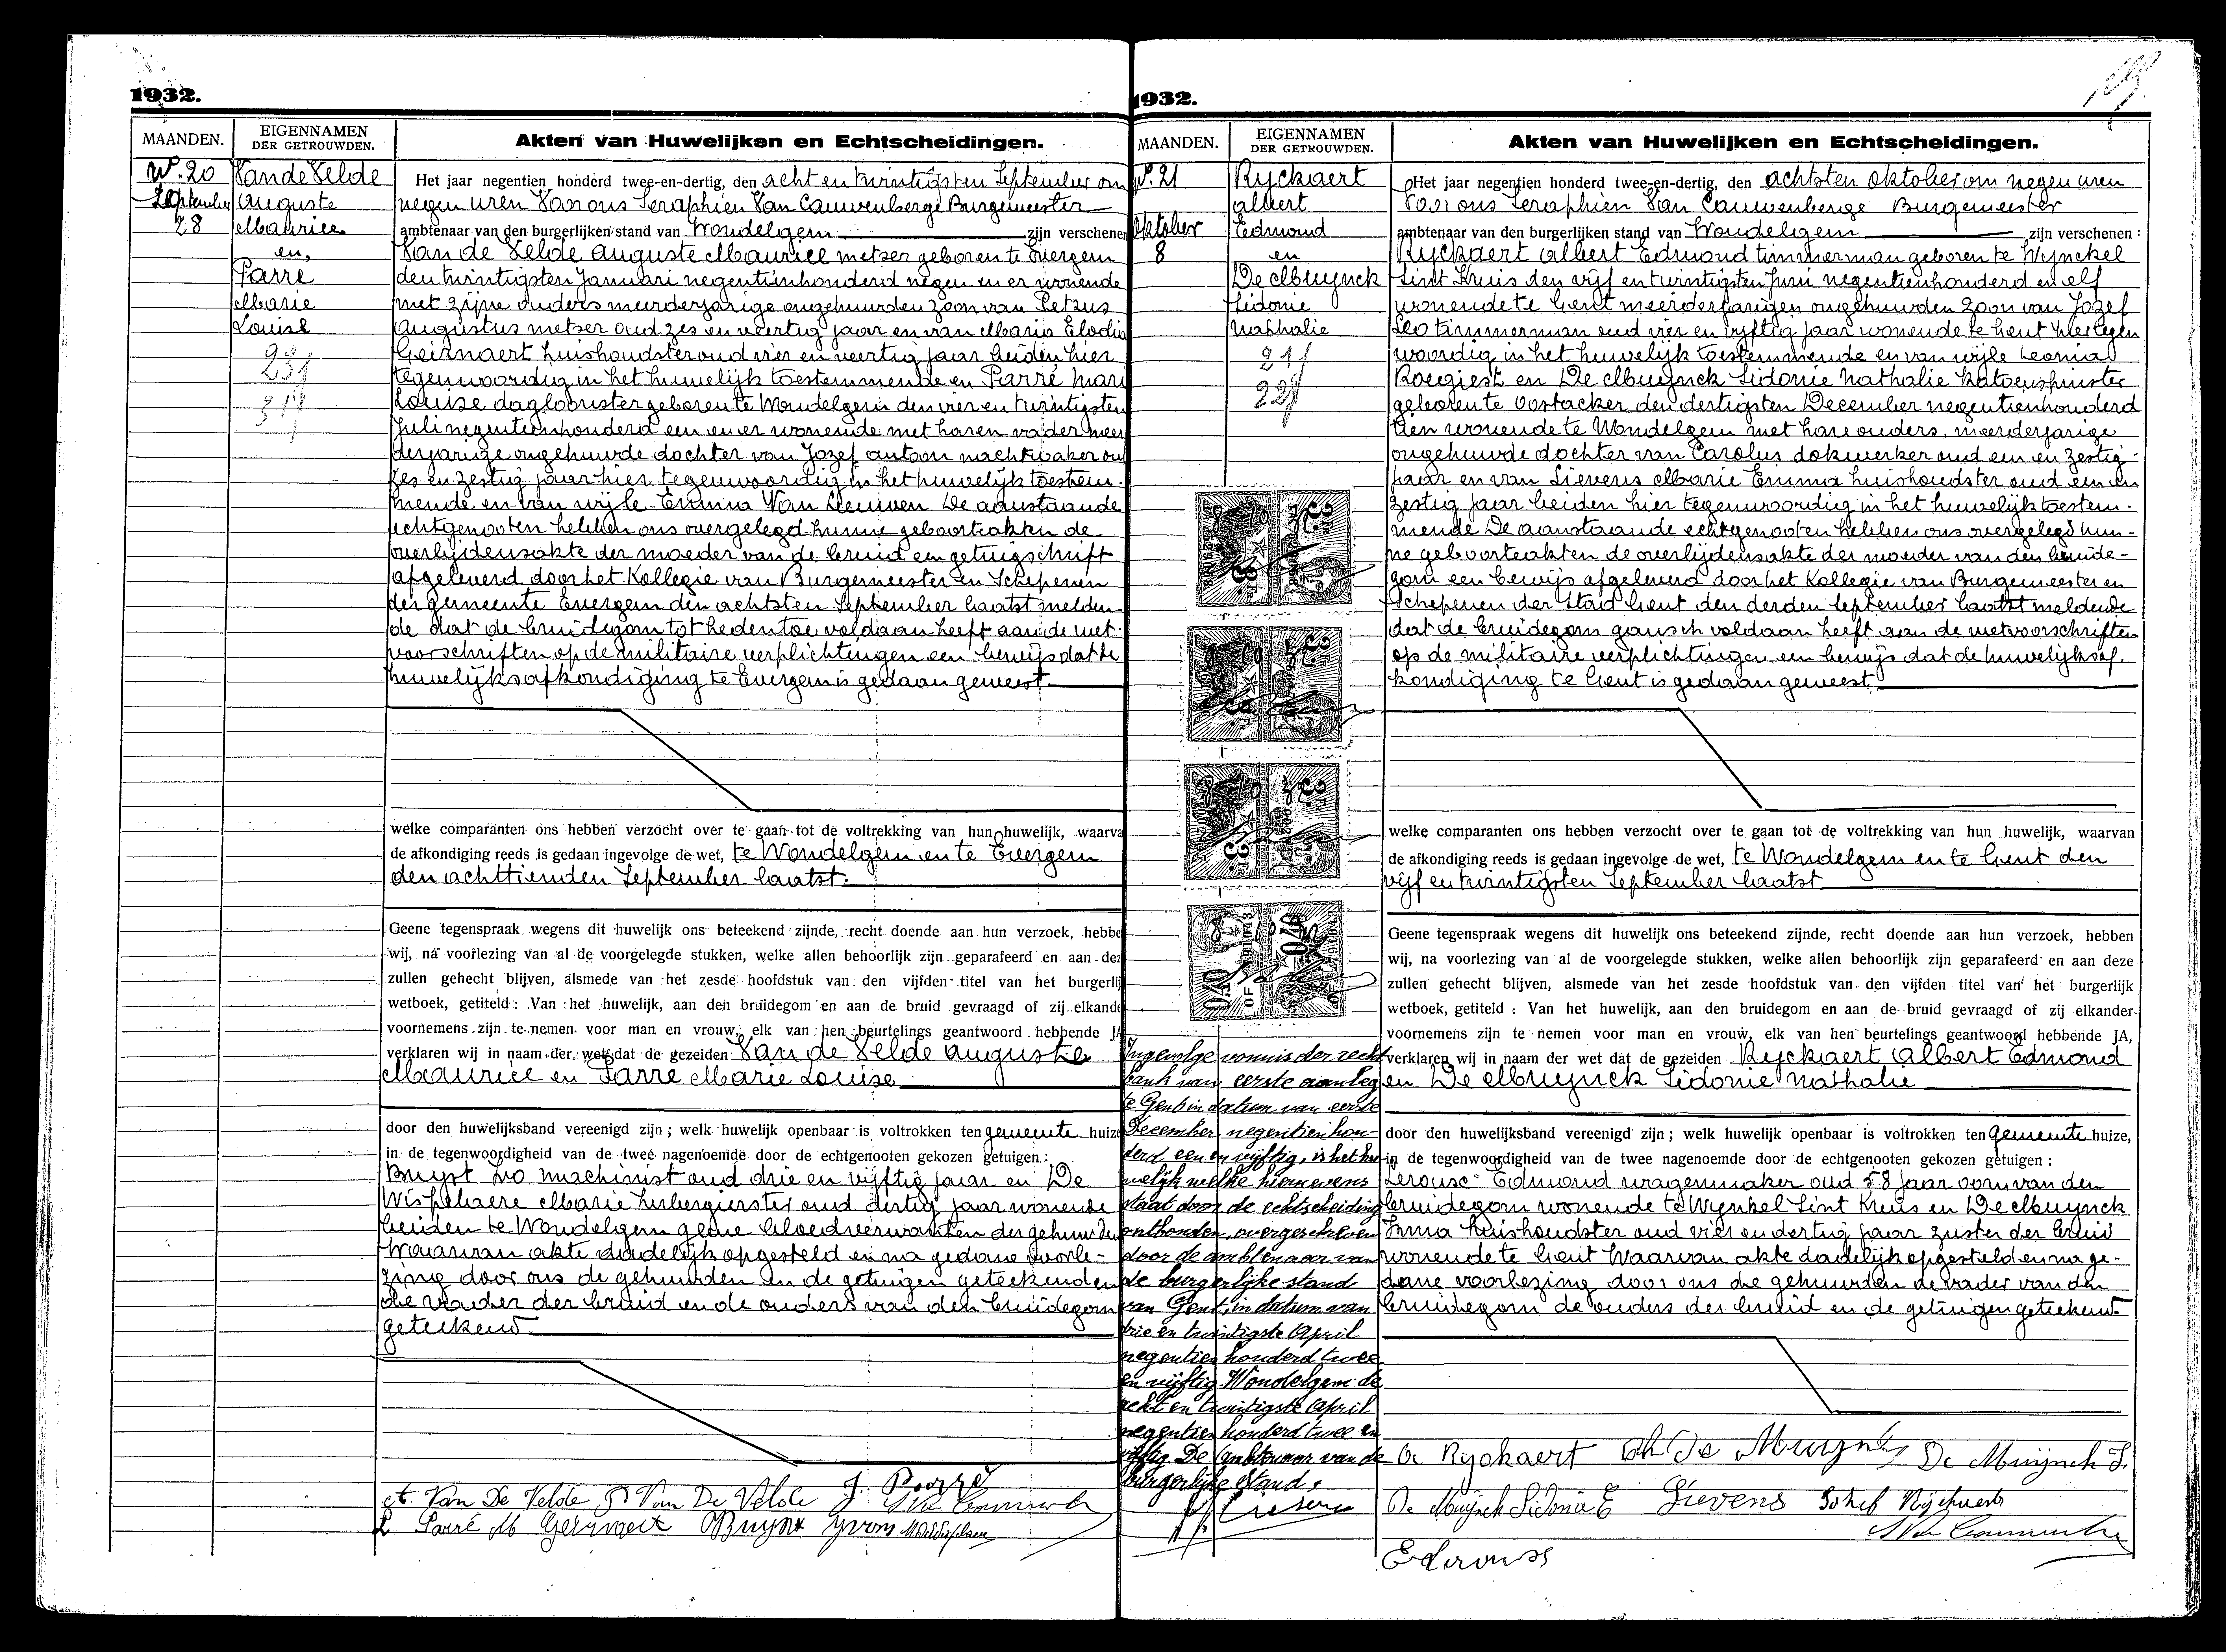 1932.
MAANDEN.
EIGENNAMEN
DER GETROUWDEN.
Akten van Huwelijken en Echtscheidingen.
N. 20
September
28
Van de Velde
Auguste
Maurice
en
Parré
Marie
Louise
Het jaar negentien honderd twee-en-dertig, den acht en twintigsten September om
negen uren Voor ons Seraphien Van Cauwenberge Burgemeester
ambtenaar van den burgerlijken stand van Wondelgem zijn verschenen
Van de Velde Auguste Maurice metser geboren te Evergem
den twintigsten Januari negentienhonderd negen en er wonende
met zijne ouders meerderjarige ongehuwden zoon van Petrus
Augustus metser oud zes en veertig jaar en van Maria Elodia
Geirnaert huishoudster oud vier en veertig jaar beiden hier
tegenwoordig in het huwelijk toestemmende en Parré Mari
Louise dagloonster geboren te Wondelgem den vier en twintigsten
Juli negentienhonderd een en er wonende met haren vader meer
derjarige ongehuwde dochter van Jozef Antoon nachtwaker oud
zes en zestig jaar hier tegenwoordig in het huwelijk toestem-
mende en van wijle Emma Van Leeuwen De aanstaande
echtgenooten hebben ons overgelegd hunne geboorteakten de
overlijdensakte der moeder van de bruid een getuigschrift
afgeleverd door het Kollegie van Burgemeester en Schepenen
der gemeente Evergem den achtsten September laatst melden-
de dat de bruidegom tot heden toe voldaan heeft aan de wet-
voorschriften op de militaire verplichtingen een bewijs dat de
huwelijksafkondiging te Evergem is gedaan geweest
welke comparanten ons hebben verzocht over te gaan tot de voltrekking van hun huwelijk, waarva
de afkondiging reeds is gedaan ingevolge de wet, te Wondelgem en te Evergem
den achttienden September laatst.
Geene tegenspraak wegens dit huwelijk ons beteekend zijnde, recht doende aan hun verzoek, hebbe
wij, na voorlezing van al de voorgelegde stukken, welke allen behoorlijk zijn geparafeerd en aan dez
zullen gehecht blijven, alsmede van het zesde hoofdstuk van den vijfden titel van het burgerlij
wetboek, getiteld : Van het huwelijk, aan den bruidegom en aan de bruid gevraagd of zij elkande
voornemens zijn te nemen voor man en vrouw, elk van hen beurtelings geantwoord hebbende JA
verklaren wij in naam der wet dat de gezeiden Van de Velde Auguste
Maurice en Parré Marie Louise
door den huwelijksband vereenigd zijn ; welk huwelijk openbaar is voltrokken ten gemeente huize
in de tegenwoordigheid van de twee nagenoemde door de echtgenooten gekozen getuigen :
Buyst Ivo machinist oud drie en vijftig jaar en De
Wispelaere Marie herbergierster oud dertig jaar wonende
beiden te Wondelgem geene bloedverwanten der gehuwden
Waarvan akte dadelijk opgesteld en na gedane voorle-
zing door ons de gehuwden en de getuigen geteekend en
de vader der bruid en de ouders van den bruidegom
geteekend
A. Van De Velde P. Van De Velde J. Parré
L Parré M Geirnaert Buyst Yvon
1932.
MAANDEN.
EIGENNAMEN
DER GETROUWDEN.
Akten van Huwelijken en Echtscheidingen.
N. 21
Oktober
8
Ryckaert
Albert
Edmond
en
De Muynck
Sidonie
Nathalie
Ingevolge vonnis der recht
bank van eerste aanleg
te Gent in datum van eerste
December negentien hon-
derd een en vijftig, is het hu-
welijk welke hiernevens
staat door de echtscheiding
ontbonden, overgeschreven
door de ambtenaar van
de burgerlijke stand
van Gent, in datum van
drie en twintigste April
negentien honderd twee
en vijftig. Wondelgem de
acht en twintigste April
negentien honderd twee en
vijftig. De ambtenaar van de
burgerlijke stand,
Het jaar negentien honderd twee-en-dertig, den achtsten Oktober om negen uren
Voor ons Seraphien Van Cauwenberge Burgemeester
ambtenaar van den burgerlijken stand van Wondelgem zijn verschenen :
Ryckaert Albert Edmond timmerman geboren te Wynckel
Sint Kruis den vijf en twintigsten Juni negentienhonderd en elf
wonende te Gent meerderjarigen ongehuwden zoon van Jozef
Leo timmerman oud vier en vijftig jaar wonende te Gent hier tegen
woordig in het huwelijk toestemmende en van wijle Leonia
Roegiest en De Muynck Sidonie Nathalie katoenspinster
geboren te Oostacker den dertigsten December negentienhonderd
tien wonende te Wondelgem met hare ouders, meerderjarige
ongehuwde dochter van Carolus dokwerker oud een en zestig
jaar en van Lievens Marie Emma huishoudster oud een en
zestig jaar beiden hier tegenwoordig in het huwelijk toestem-
mende De aanstaande echtgenooten hebben ons overgelegd hun-
ne geboorteakten de overlijdensakte der moeder van den bruide-
gom een bewijs afgeleverd door het Kollegie van Burgemeester en
Schepenen der Stad Gent den derden September laatst meldende
dat de bruidegom gansch voldaan heeft aan de wetvoorschriften
op de militaire verplichtingen een bewijs dat de huwelijksaf-
kondiging te Gent is gedaan geweest
welke comparanten ons hebben verzocht over te gaan tot de voltrekking van hun huwelijk, waarvan
de afkondiging reeds is gedaan ingevolge de wet, te Wondelgem en te Gent den
vijf en twintigsten September laatst
Geene tegenspraak wegens dit huwelijk ons beteekend zijnde, recht doende aan hun verzoek, hebben
wij, na voorlezing van al de voorgelegde stukken, welke allen behoorlijk zijn geparafeerd en aan deze
zullen gehecht blijven, alsmede van het zesde hoofdstuk van den vijfden titel van het burgerlijk
wetboek, getiteld : Van het huwelijk, aan den bruidegom en aan de bruid gevraagd of zij elkander
voornemens zijn te nemen voor man en vrouw, elk van hen beurtelings geantwoord hebbende JA,
verklaren wij in naam der wet dat de gezeiden Ryckaert Albert Edmond
en De Muynck Sidonie Nathalie
door den huwelijksband vereenigd zijn ; welk huwelijk openbaar is voltrokken ten Gemeente huize,
in de tegenwoordigheid van de twee nagenoemde door de echtgenooten gekozen getuigen :
Lerouse Edmond wagenmaker oud 58 jaar oom van den
bruidegom wonende te Wynkel Sint Kruis en De Muynck
Irma huishoudster oud vier en dertig jaar zuster der bruid
wonende te Gent Waarvan akte dadelijk opgesteld en na ge-
dane voorlezing door ons de gehuwden de vader van den
bruidegom de ouders der bruid en de getuigen geteekend
A Ryckaert Ch De Muynck De Muynck I.
De Muynck Sidonie E Lievens Jozef Ryckaert